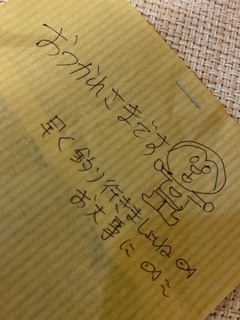 おつかれさまです
早く釣り行きましょうね
お大事に